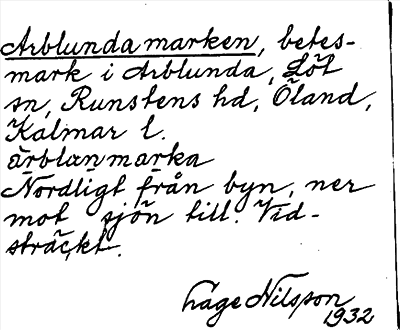 Arblunda marken, betes-
mark i Arblunda, Löt
sn, Runstens hd, Öland,
Kalmar l.
ärblanmarka
Nordligt från byn, ner
mot sjön till. Vid-
sträckt.
Åage Nilsson
1932